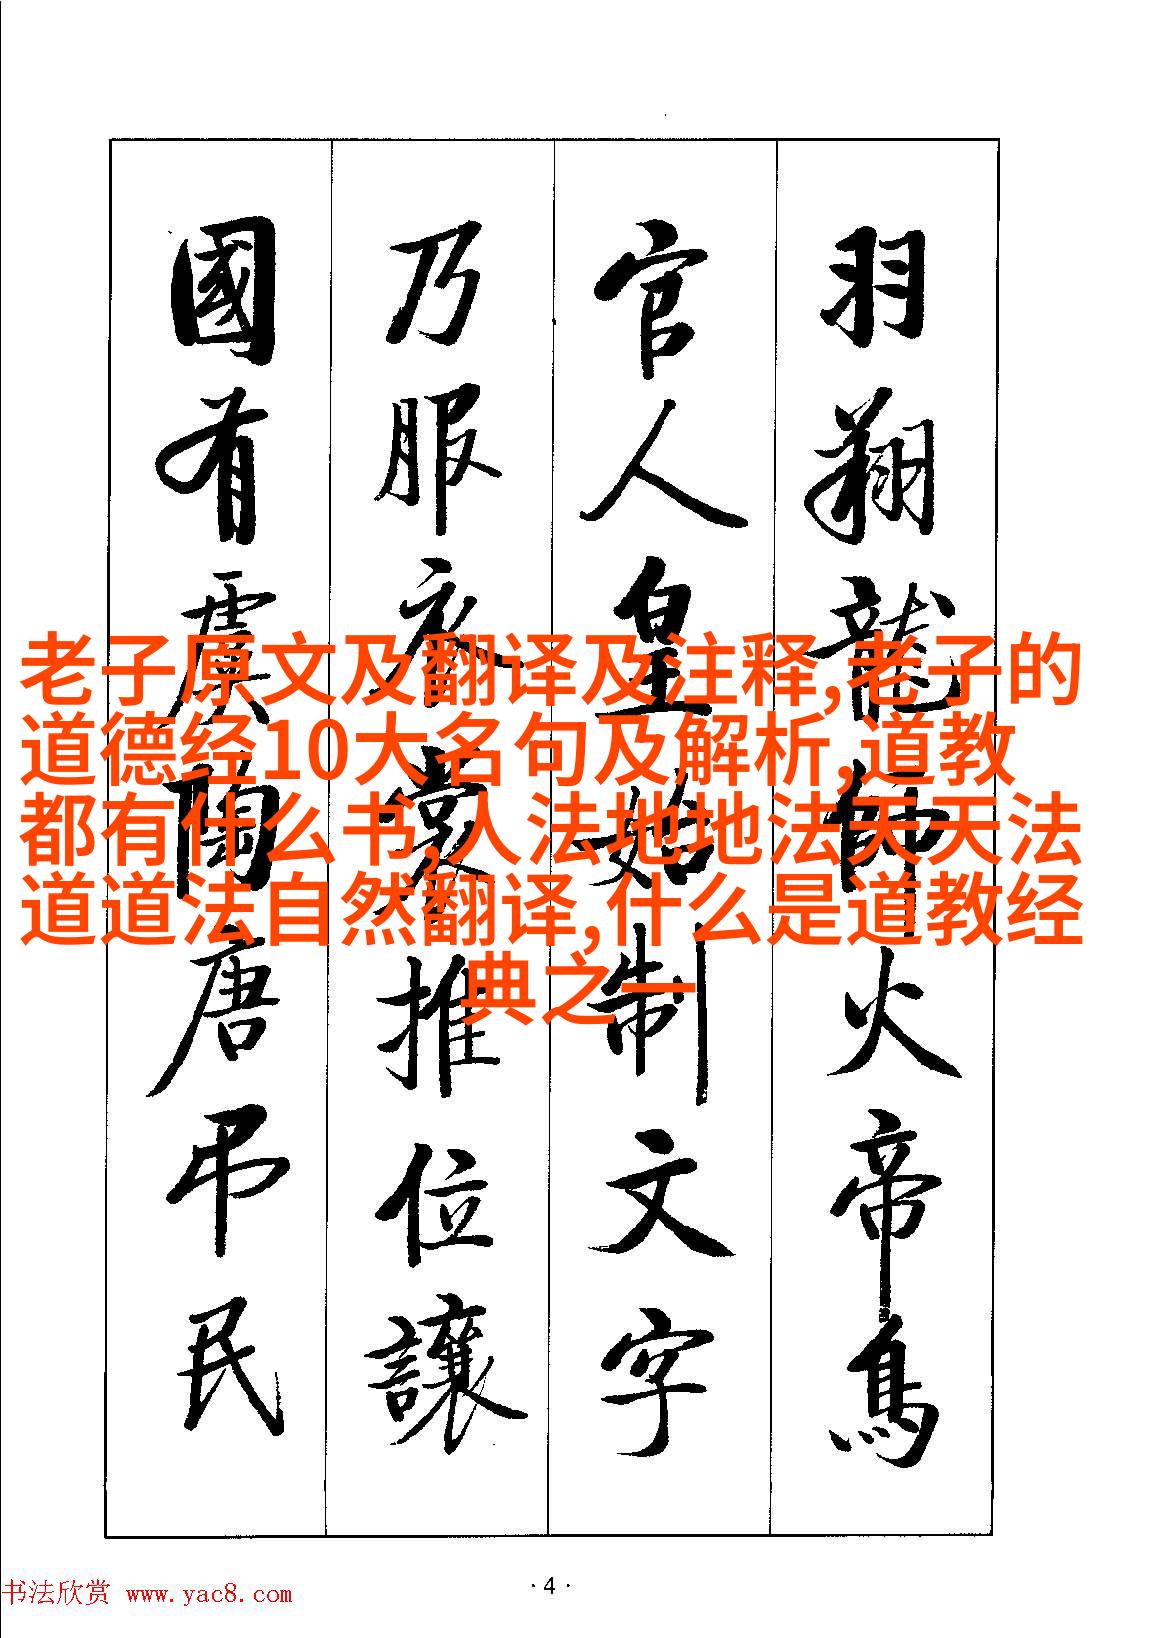 羽翔龍師火帝鳥
官人皇始制文字
乃服衣裳推位讓
國有虞陶唐弔民
老子原文及翻译及注释,老子的
道德经10大名句及解析,道教
都有什么书,人法地地法天天法
道道法自然翻译,什么是道教经
典之一
书法欣赏 www.yac8.com
·4·